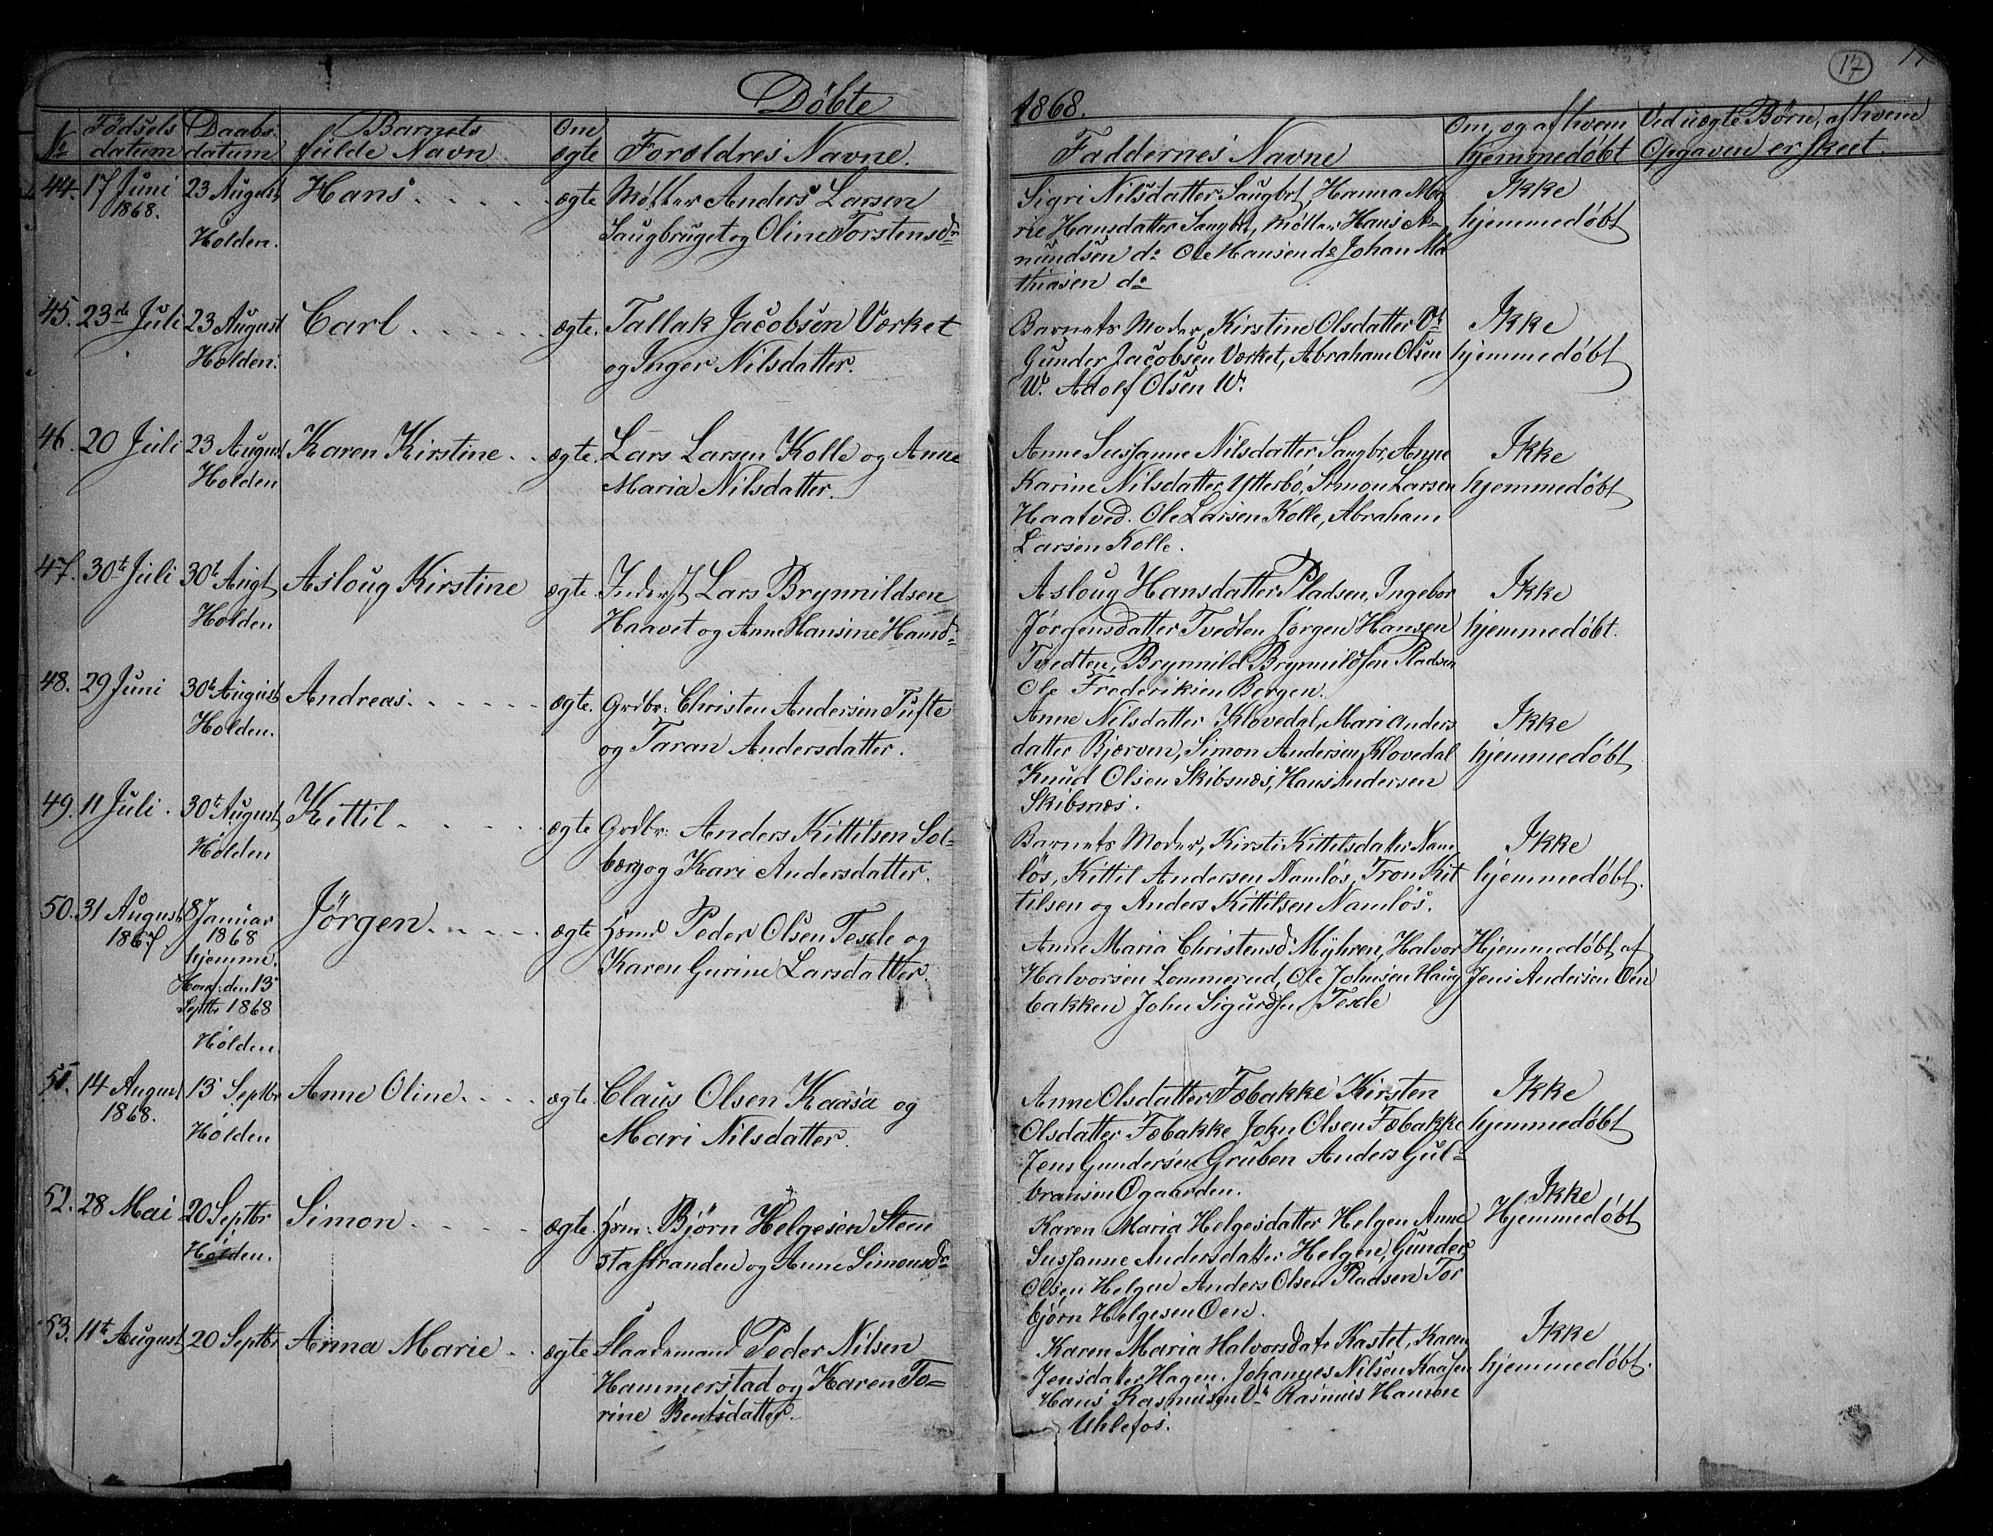 17
Döbte 1868.
No
Födsels datum
Daabs datum
Barnets fulde Navn
Om ægte
Forældres Navne.
Faddernes Navne
Om, og af hvem hjemmedöbt
Ved uægte Börn, af hvem Opgaven er skeet.
44. 17 Juni 1868.
23 August Holden.
Hans
ægte
Møller Anders Larsen
Saugbruget og Oline Torstensdr
Sigri Nilsdatter Saugbrt, Hanna Ma
rie Hansdatter Saugbrt, Møller Hans A-
mundsen do Ole Hansen do Johan Ma
thiasen do
Ikke
hjemmedöbt
45. 23de Juli
23 August Holden.
Carl
ægte.
Tallak Jacobsen Værket
og Inger Nilsdatter.
Barnets Moder, Kirstine Olsdatter Vt
Gunder Jacobsen Værket, Abraham Olsen
W. Adolf Olsen W.
Ikke
hjemmedöbt
46. 20 Juli
23 August Holden
Karen Kirstine
ægte.
Lars Larsen Kolle og Anne
Maria Nilsdatter.
Anne Susanne Nilsdatter Saugbr, Anne
Karine Nilsdatter Ytterbö, Simon Larsen
Haatved. Ole Larsen Kolle, Abraham
Larsen Kolle.
Ikke
hjemmedöbt
47. 30t Juli
30t Augt Holden
Asloug Kirstine
ægte
Inderst Lars Brynnildsen
Haavet og Anne Hansine Hansdr
Asloug Hansdatter Pladsen, Ingebor
Jörgensdatter Tvedten Jörgen Hansen
Tvedten, Brynnild Brynnildsen Pladsen
Ole Frederiksen Bergen.
Ikke
hjemmedöbt.
48. 29 Juni
30t August Holden.
Andreas
ægte.
Grdbr: Christen Andersen Tufte
og Taran Andersdatter.
Anne Nilsdatter Klovedal, Mari Anders
datter Bjerven, Simon Andersen Klovedal
Knud Olsen Skibsnæs, Hans Andersen
Skibsnæs.
Ikke
hjemmedöbt
49. 11 Juli.
30t August Holden
Kittil
ægte
Grdbr: Anders Kittilsen Sol-
berg og Kari Andersdatter.
Barnets Moder, Kirsti Kittilsdatter Nam
lös, Kittil Andersen Namlös, Tron Kit
tilsen og Anders Kittilsen Namlös.
Ikke
hjemmedöbt.
50. 31 August 1867
8 Januar
1868
hjemme.
Conf: den 13
Septbr 1868
Holden.
Jörgen
ægte
Hsmd Peder Olsen Tesde og
Karen Gurine Larsdatter.
Anne Maria Christensd. Myhren, Halvor
Halvorsen Lommerud, Ole Johnsen Haug
bakken John Sigurdsen Tesde
Hjemmedöbt af
Jens Andersen Oen
51. 14 August 1868.
13 Septbr Holden
Anne Oline
ægte
Claus Olsen Kaasa og
Mari Nilsdatter.
Anne Olsdatter Fæbakke Kirsten
Olsdatter Fæbakke John Olsen Fæbakke
Jens Gundersen Gruben Anders Gul-
bransen Ogaarden.
Ikke
hjemmedöbt
52. 28 Mai
20 Septbr Holden.
Simon
ægte
Hsm: Björn Helgesen Sten
stastranden og Anne Simonsdr
Karen Maria Helgesdatter Helgen Anne
Susanne Andersdatter Helgen, Gunder
Olsen Helgen Anders Olsen Pladsen Tor
björn Helgesen Oen.
Ikke
Hjemmedöbt
53. 11t August
20 Septbr
Anna Marie
ægte
Slaadsmand Peder Nilsen
Hammerstad og Karen To=
rine Bentsdatter.
Karen Maria Halvorsdatr Kastet, Karen
Jensdatter Hagen, Johannes Nilsen Kaasen
Hans Rasmusen Vt Rasmus Hansen
Uhlefos.
Ikke
hjemmedöbt.